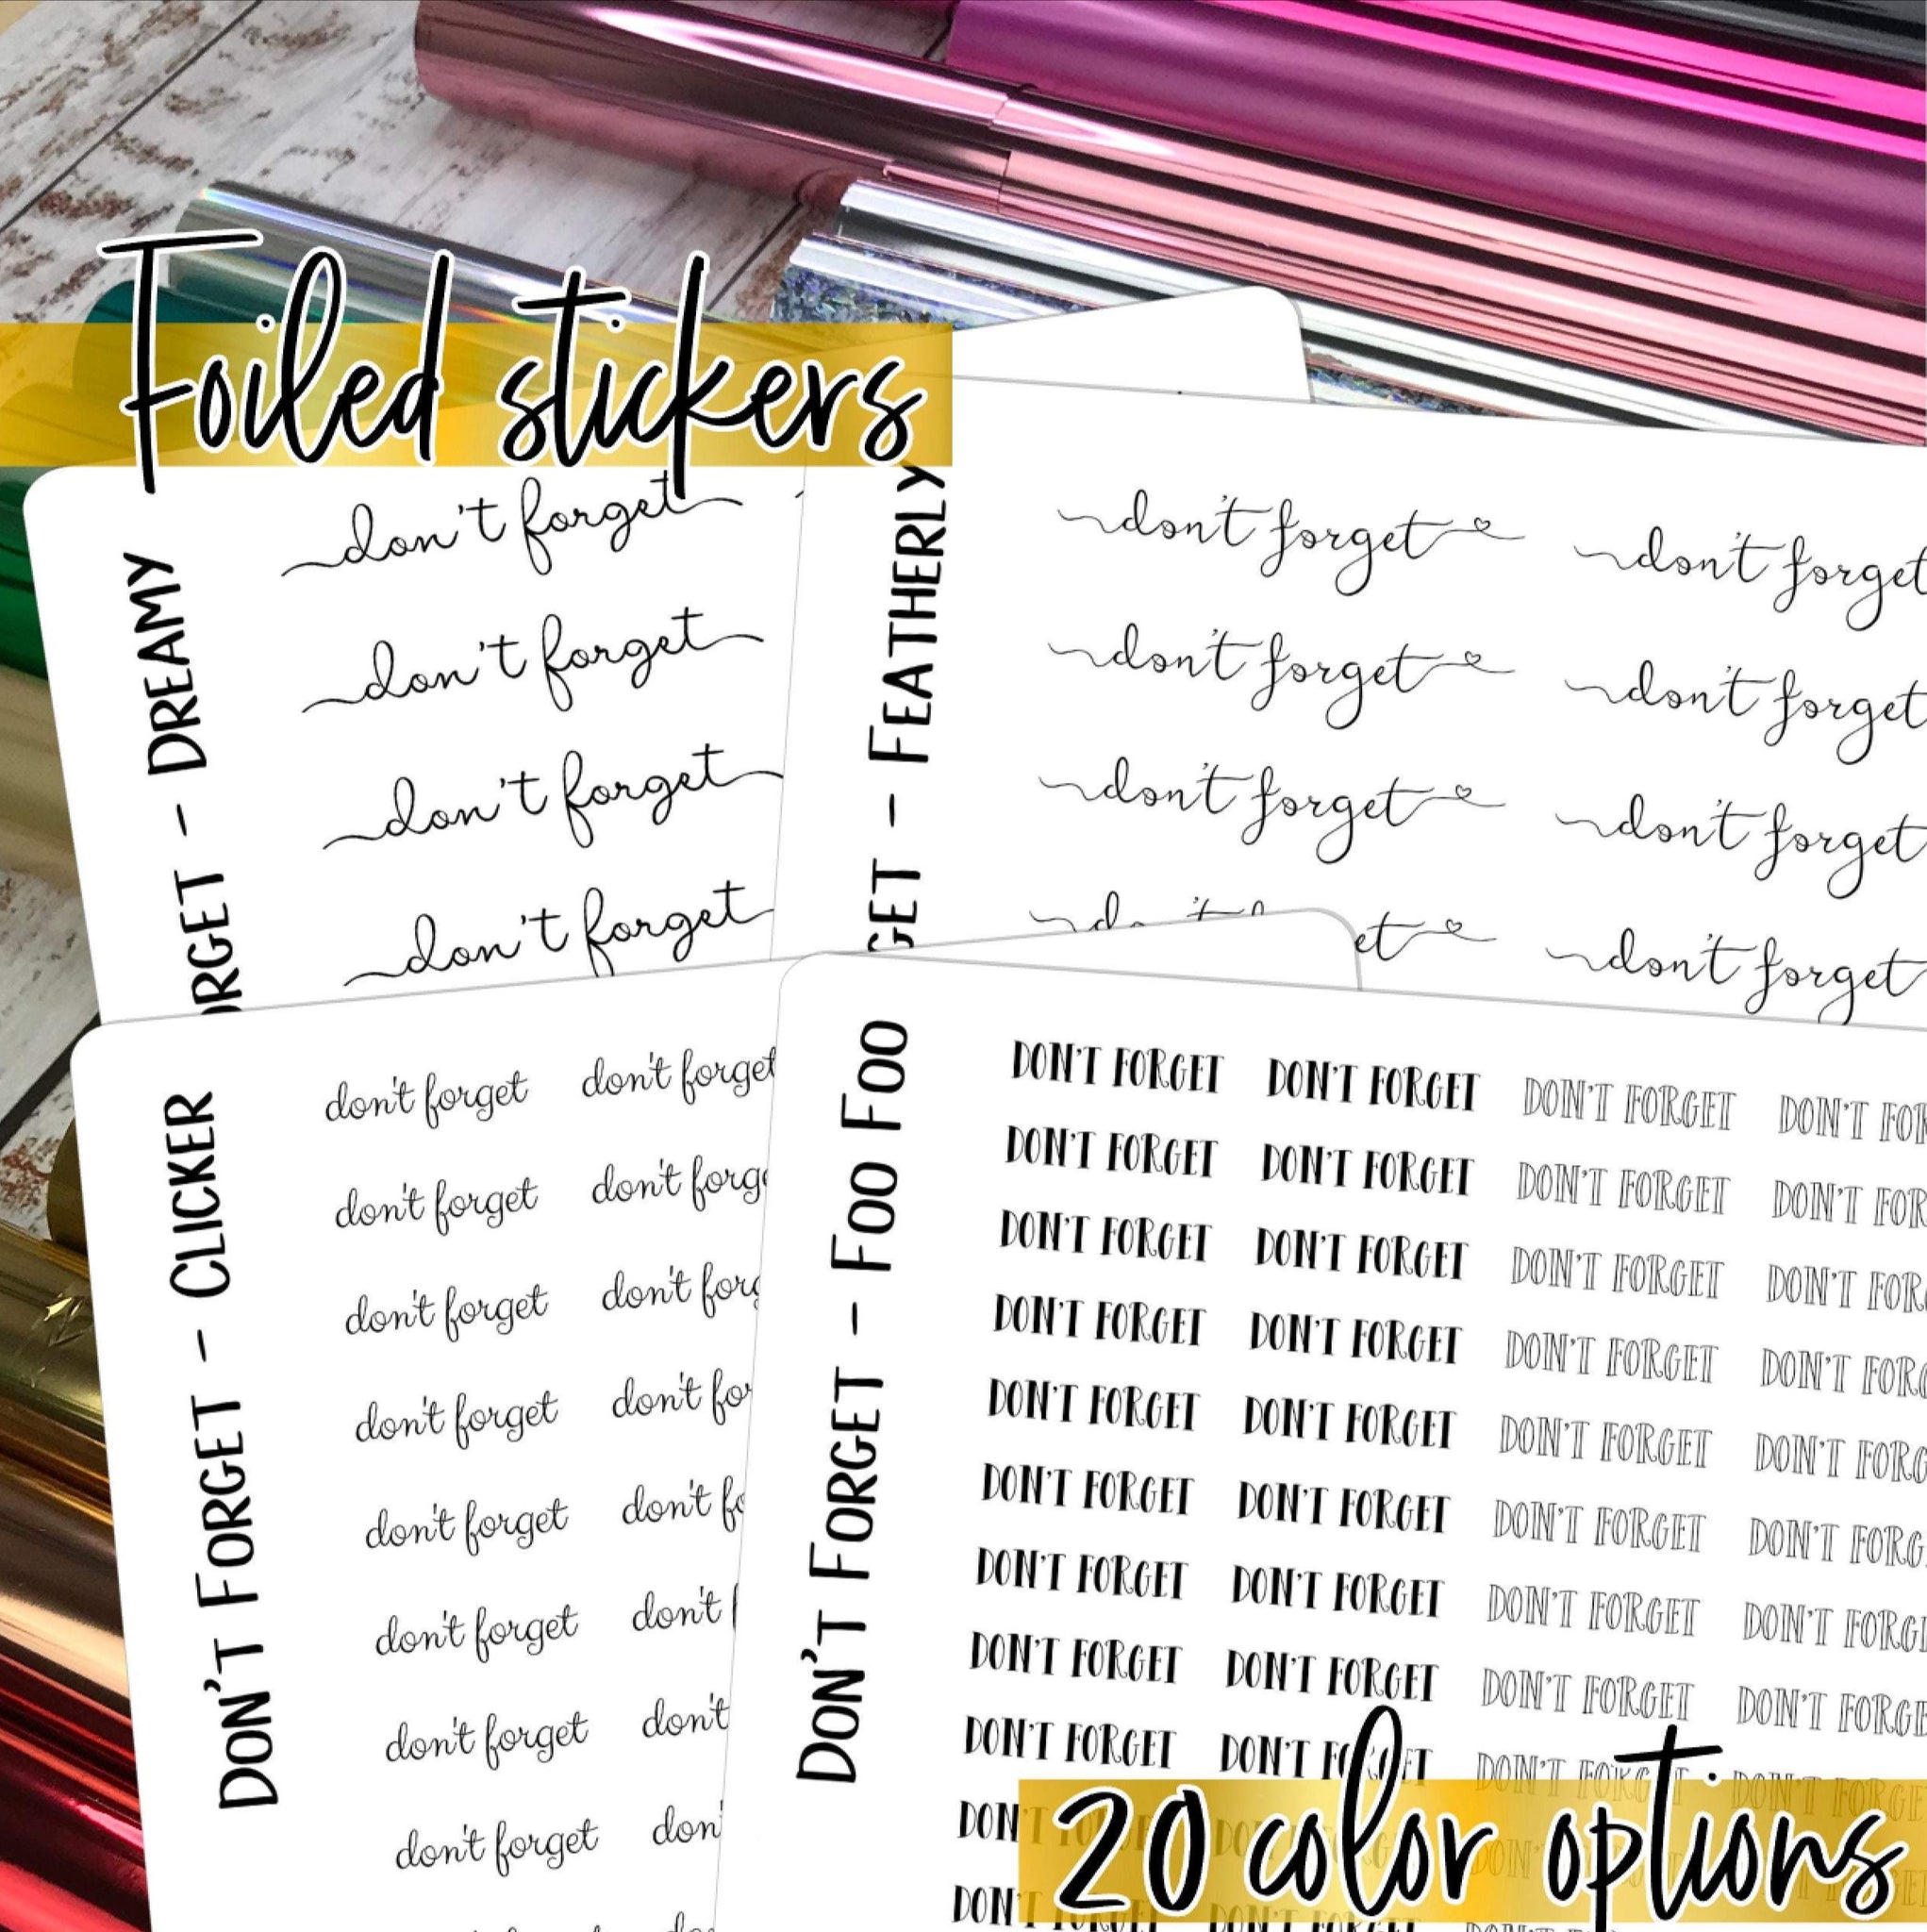 Foiled stickers
ORGET - DREAMY
don't forget
don't forget
don't forget
don't forget
GET - FEATHERLY
don't forget don't forget
don't forget don't forget
don't forget don't forget
don't forget
DON'T FORGET - CLICKER
don't forget don't forget
don't forget don't forge
don't forget don't forg
don't forget don't for
don't forget don't fo
don't forget don't f
don't forget don't
don't forget don'
DON'T FORGET - FOO FOO
DON'T FORGET DON'T FORGET DON'T FORGET DON'T FOR
DON'T FORGET DON'T FORGET DON'T FORGET DON'T FOR
DON'T FORGET DON'T FORGET DON'T FORGET DON'T FOR
DON'T FORGET DON'T FORGET DON'T FORGET DON'T FORG
DON'T FORGET DON'T FORGET DON'T FORGET DON'T FORG
DON'T FORGET DON'T FORGET DON'T FORGET DON'T FORG
DON'T FORGET DON'T FORGET DON'T FORGET DON'T FORGE
DON'T FORGET DON'T FORGET DON'T FORGET DON'T FORGE
DON'T FORGET DON'T FORGET DON'T FORGET DON'T FORGE
20 color options